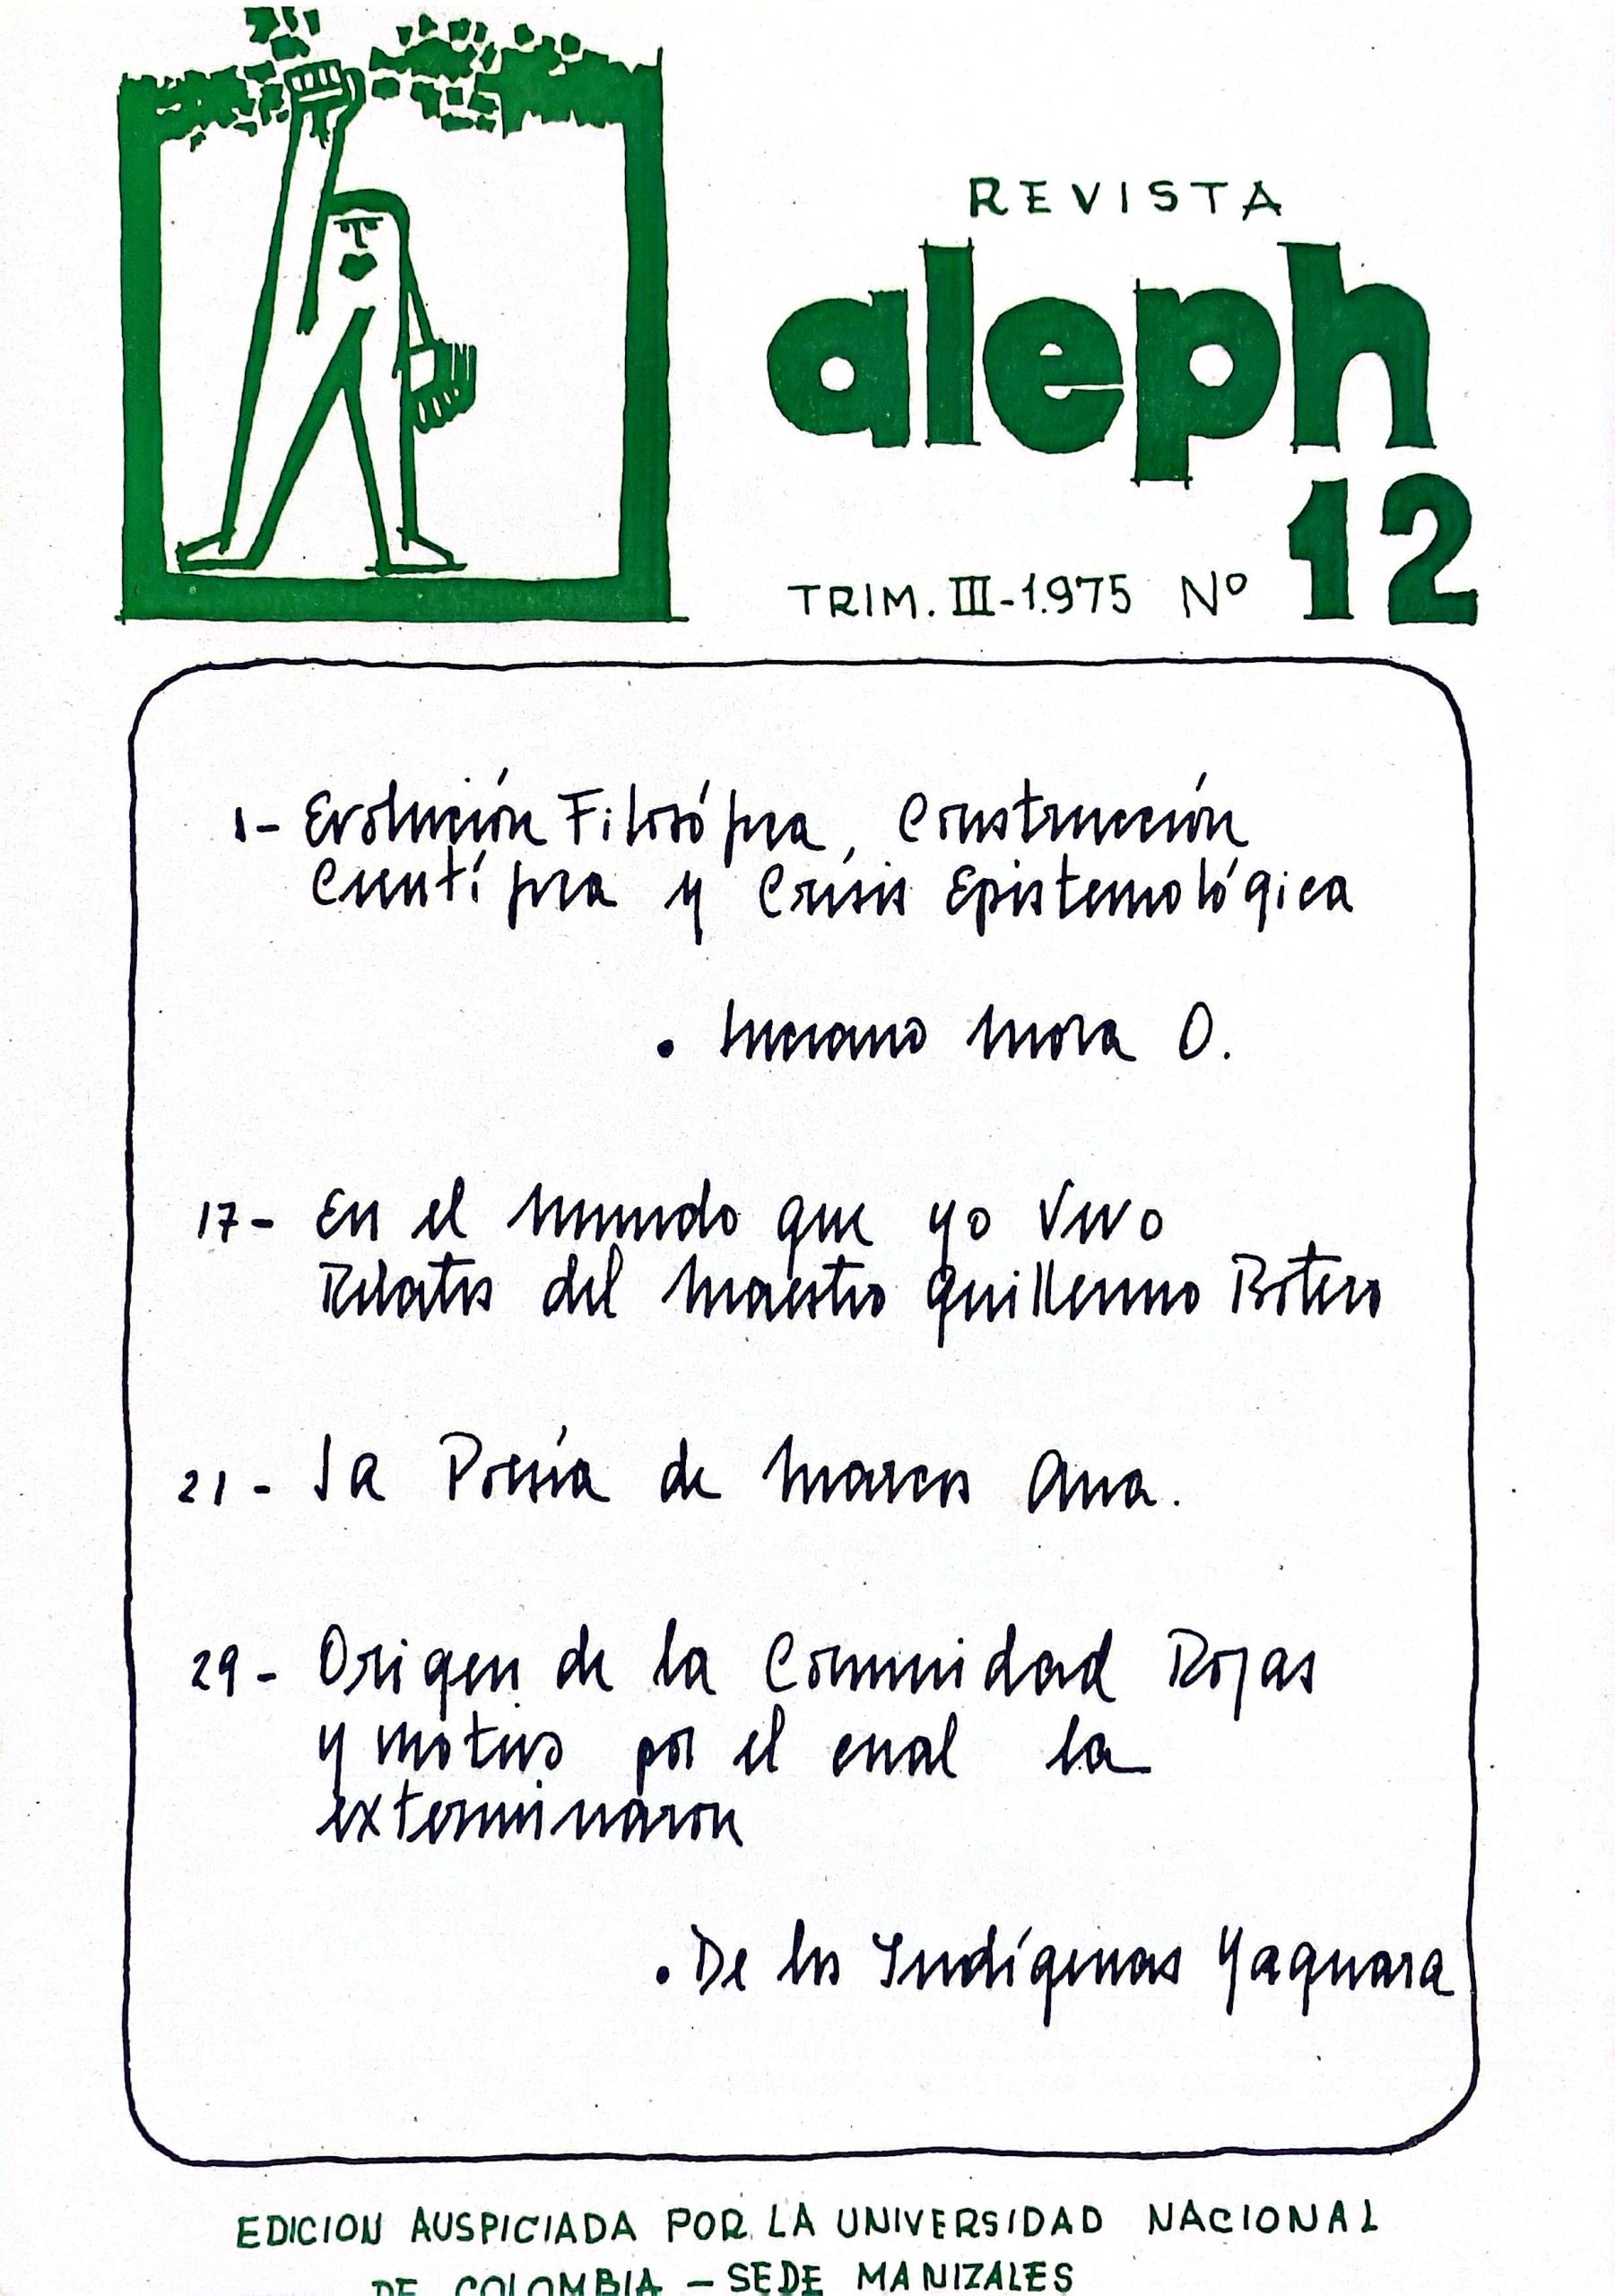 REVISTA
aleph
12
TRIM. III-1.975 Nº
1- Evolución Filosófica, Construcción
Científica y Crisis Epistemológica
• Luciano Mora O.
17- En el Mundo que yo Vivo
Relatos del Maestro Guillermo Botero
21- La Poesía de Marcos Ana.
29- Origen de la Comunidad Rojas
y motivo por el cual la
exterminaron
• De los Indígenas Yaguara
EDICION AUSPICIADA POR LA UNIVERSIDAD NACIONAL
DE COLOMBIA - SEDE MANIZALES